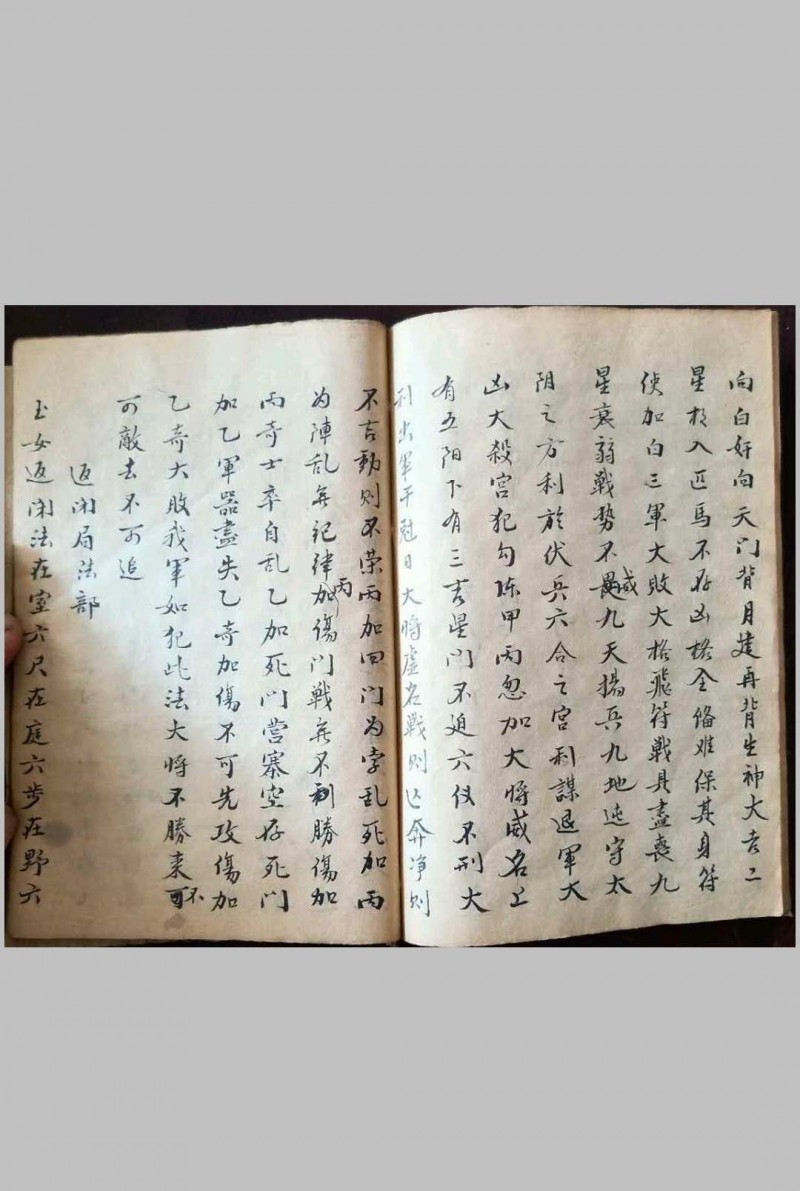 向白奸向天门背月建再背生神大吉二
星格入匹馬不存凶格全俻难保其身符
使加白三軍大敗大格飛符戰具盡喪九
星衰弱戰势不咸九天揚兵九地迯守太
阴之方利於伏兵六合之宫利謀退軍大
凶大殺宫犯勾陈甲丙忽加大将威名上
有五阳下有三吉星门不迫六仪不刑大
利出軍干冠日大將虚名戰则奔净则
不吉動则不荣丙加四门为孛乱死加丙
为陣乱無記律丙加傷门戰無不利勝傷加
丙奇士卒自乱乙加死门营寨空存死门
加乙軍器盡失乙奇加傷不可先攻傷加
乙奇大敗我軍如犯此法大將不勝来不
可敵去不可追
返闭局法部
玉女返闭法在室六尺在庭六步在野六